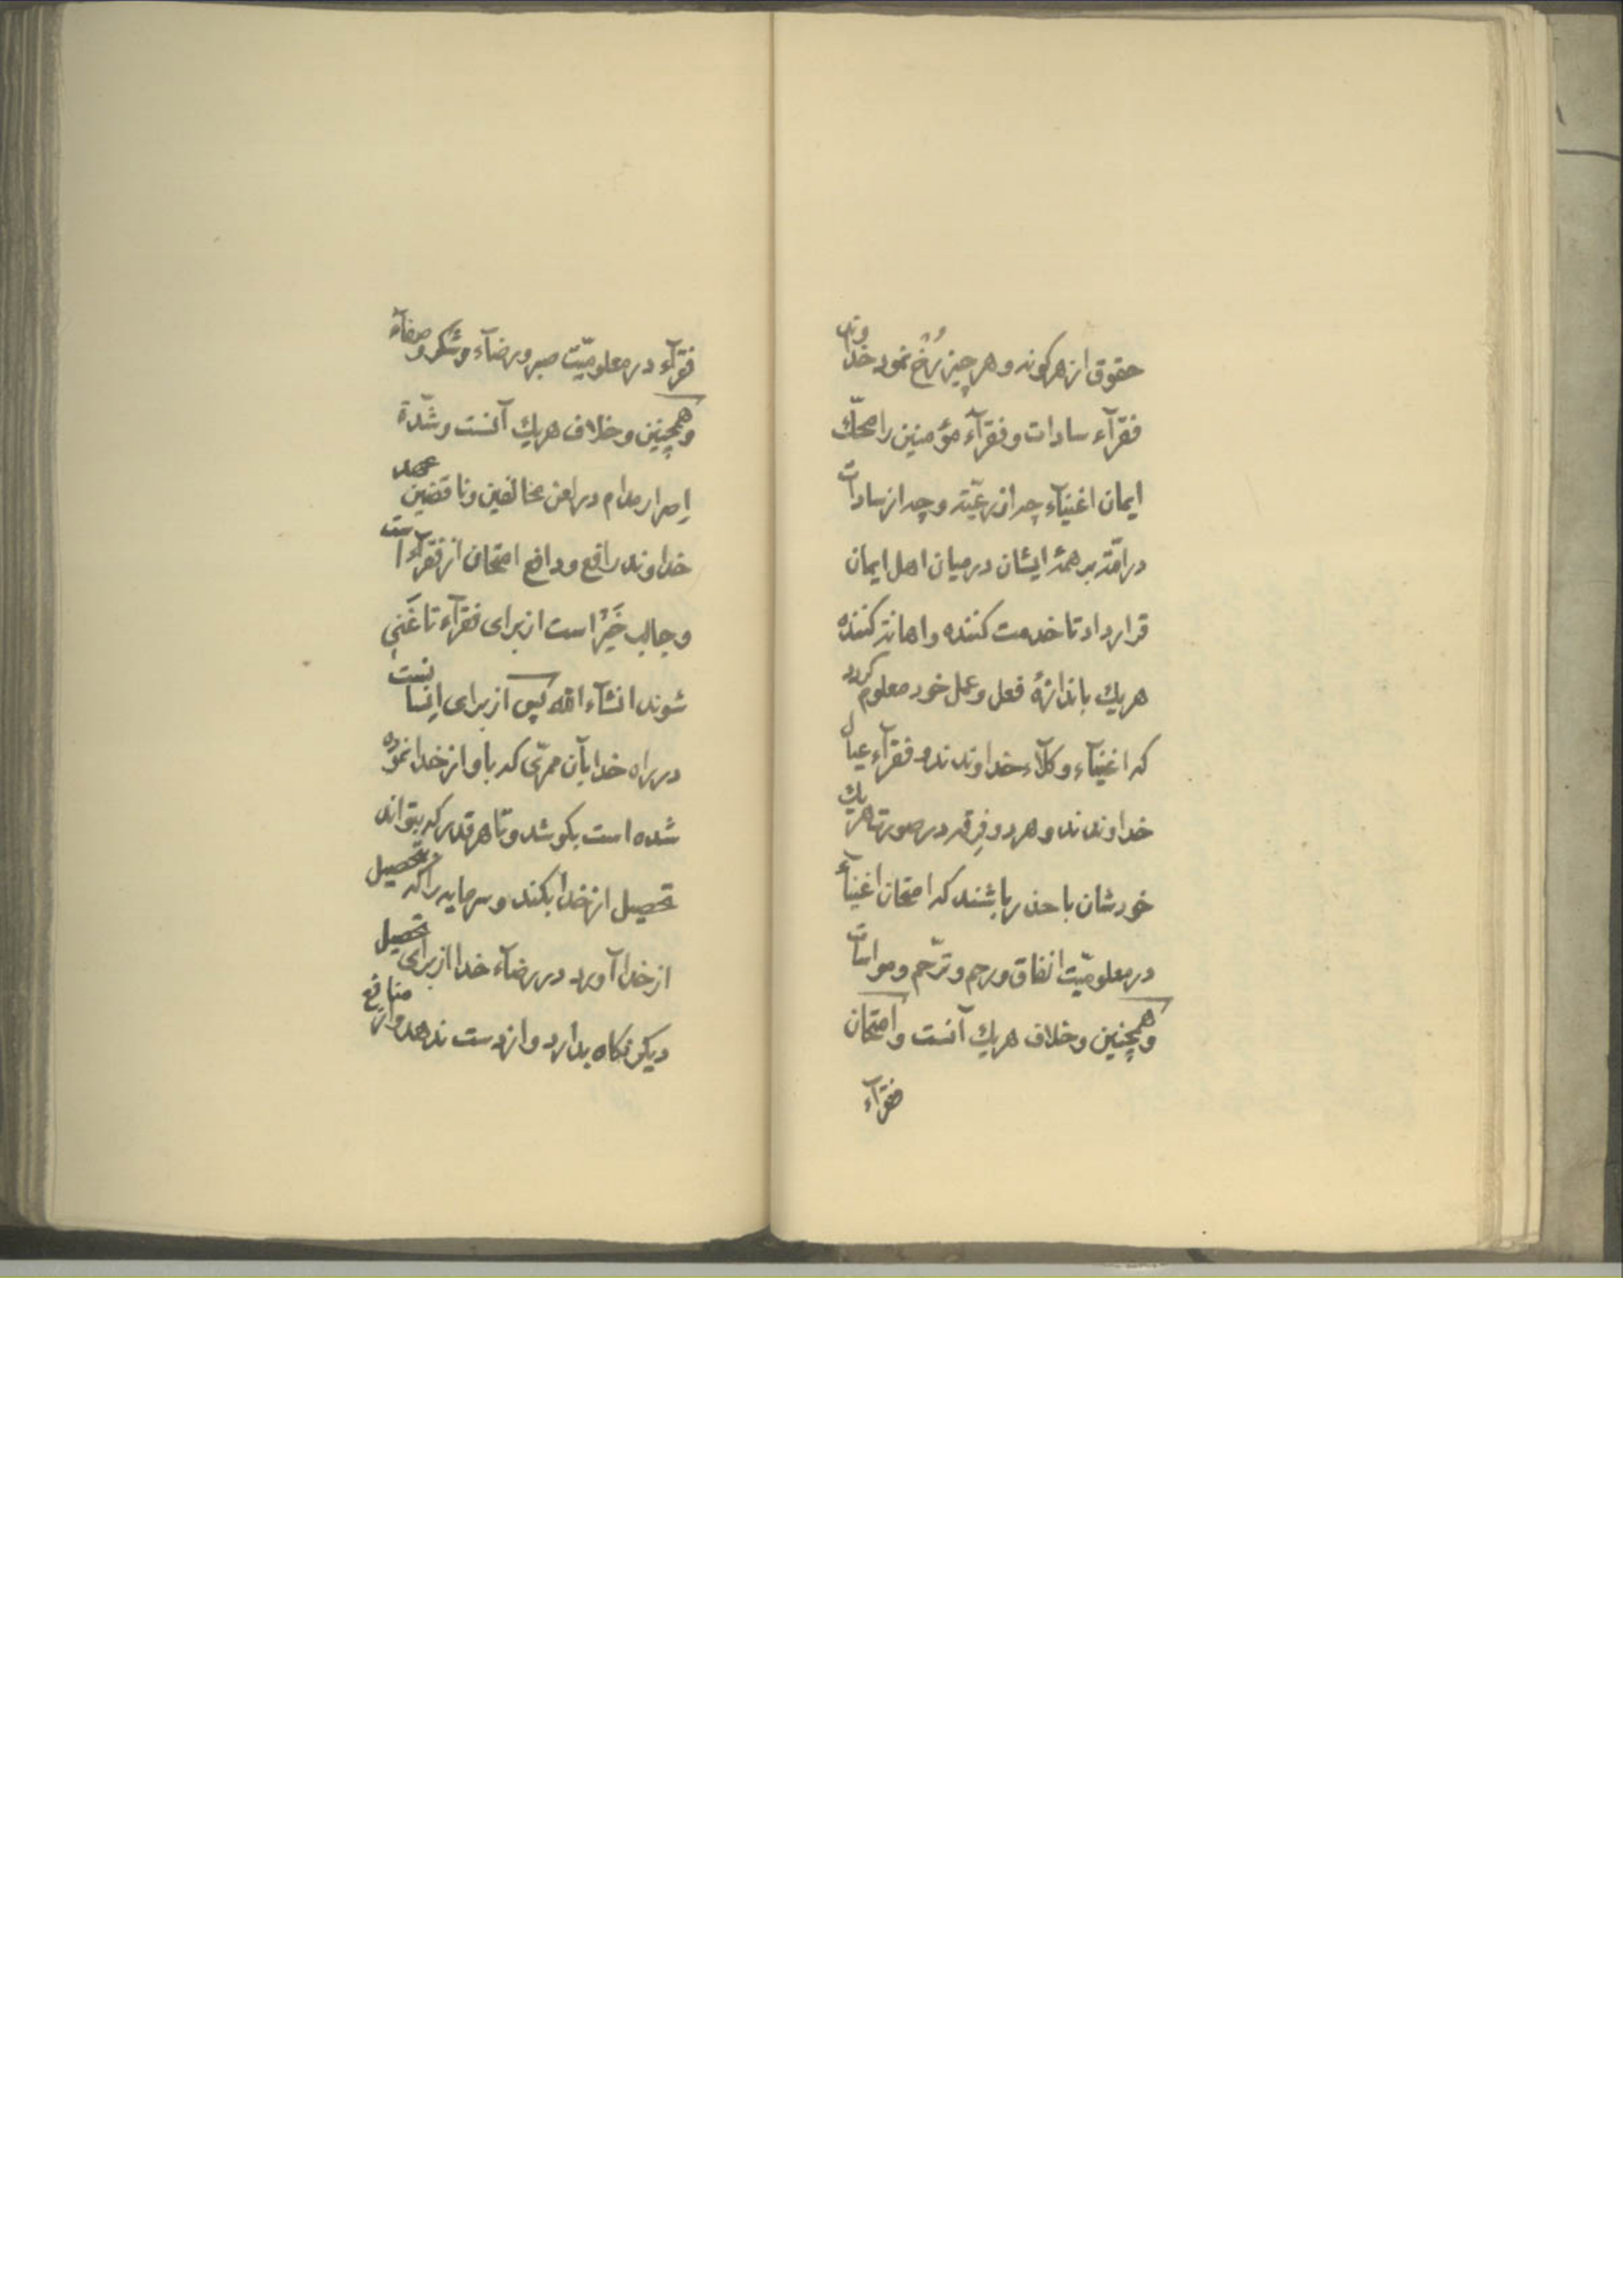 حقوق از هر کونه و هر چیز رُخ نمود خداوند
فقرآء سادات و فقرآء مؤمنین را محکّ
ایمان اغنیآء چه از رعیّته و چه از سادات
در امّة بر همهٔ ایشان در میان اهل ایمان
قرار داد تا خدمت کننده و اهانة کننده
هریك باندازهٔ فعل و عمل خود معلوم کردد
که اغنیآء وکلآء خداوندند و فقرآء عیال
خداوندند و هر دو فِرقه در صورة هریك
خودشان با حذر باشند که امتحان اغنیآء
در معلومیّت انفاق و رحم و ترّحم و مواسات
وهمچنین و خلاف هریك آنست و امتحان
فقرآء
فقرآء در معلومیّت صبر و رضآء و شکر و صفآء
وهمچنین و خلاف هریك آنست و شّدة
اِصرار مدام در لعن مخالفین و ناقضین عهد
خداوند رافع و دافع امتحان از فقرآء است
و جالب خَیْر است از برای فقرآء تا غَنی
شوند انشآء الله پس از برای اِنسانست
در راه خدا بآن ممرّی که باو از خدا نموده
شده است بکوشد و تا هر قدر که بتواند
تحصیل از خدا بکند و سرمایه را که در تحصیل
از خدا آورد در رضآء خدا از برای تحصیل
دیکر نکاه بدارد و از دست ندهد و از منافع